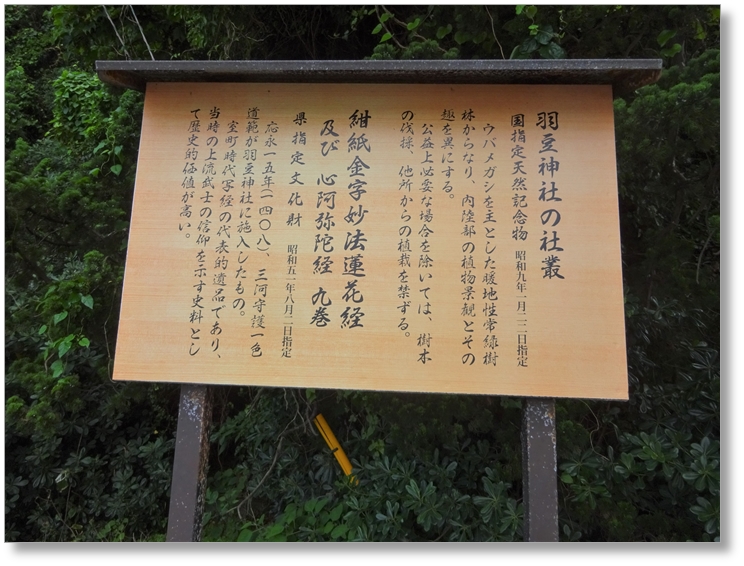 羽豆神社の社叢
国指定天然記念物　昭和九年一月二二日指定
ウバメガシを主とした暖地性常緑樹
林からなり、内陸部の植物景観とその
趣を異にする。
公益上必要な場合を除いては、樹木
の伐採、他所からの植栽を禁ずる。
紺紙金字妙法蓮花経
及び　心阿弥陀経　九巻
県指定文化財　昭和五一年八月二日指定
応永一五年(一四〇八)、三河守護一色
道範が羽豆神社に施入したもの。
室町時代写経の代表的遺品であり、
当時の上流武士の信仰を示す史料とし
て歴史的価値が高い。